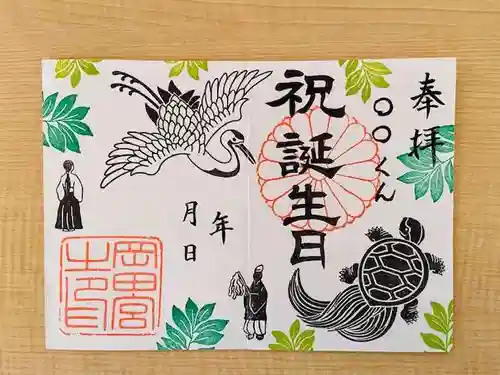 奉拝
〇〇くん
祝誕生日
年
月日
岡田宮
之印